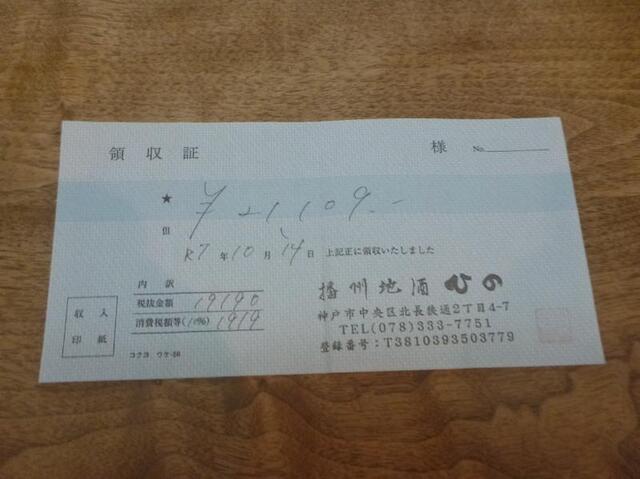 領収証 様 No.
★ ¥21,109.-
但
R7年10月14日 上記正に領収いたしました
内訳
税抜金額 19190
消費税額等(10%) 1919
収入
印紙
コクヨ ウケ-56
播州地酒 ひの
神戸市中央区北長狭通2丁目4-7
TEL(078)333-7751
登録番号:T3810393503779